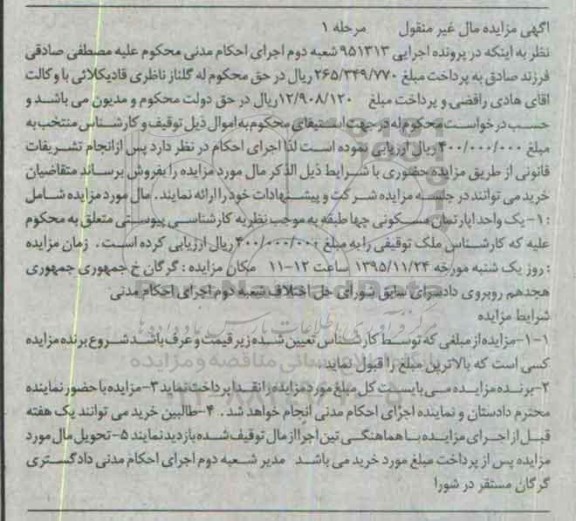 آگهی مزایده مال غیر منقول مرحله ۱
نظر به اینکه در پرونده اجرایی ۹۵۱۳۱۳ شعبه دوم اجرای احکام مدنی محکوم علیه مصطفی صادقی
فرزند صادق به پرداخت مبلغ ۲۶۵/۳۴۹/۷۷۰ ریال در حق محکوم له گلناز ناظری قادیکلائی با وکالت
اقای هادی رافضی و پرداخت مبلغ ۱۲/۹۰۸/۱۲۰ریال در حق دولت محکوم و مدیون می باشد و
حسب درخواست محکوم له در جهت استیفای محکوم به اموال ذیل توقیف و کارشناس منتخب به
مبلغ ۴۰۰/۰۰۰/۰۰۰ ریال ارزیابی نموده است لذا اجرای احکام در نظر دارد پس ازانجام تشریفات
قانونی از طریق مزایده حضوری با شرایط ذیل الذکر مال مورد مزایده را بفروش برساند متقاضیان
خرید می توانند در جلسه مزایده شرکت و پیشنهادات خود را ارائه نمایند. مال مورد مزایده شامل
:۱-یک واحد اپارتمان مسکونی چها طبقه به موجب نظر به کارشناسی پیوستی متعلق به محکوم
علیه که کارشناس ملک توقیفی را به مبلغ ۴۰۰/۰۰۰/۰۰۰ ریال ارزیابی کرده است. زمان مزایده
: روز یک شنبه مورخه ۱۳۹۵/۱۱/۲۴ ساعت ۱۲-۱۱ مکان مزایده : گرگان خ جمهوری جمهوری
هجدهم روبروی دادسرای سابق شورای حل اختلاف شعبه دوم اجرای احکام مدنی
شرایط مزایده
۱-۱-مزایده از مبلغی که توسط کارشناس تعیین شده زیر قیمت و عرف باشد شروع برنده مزایده
کسی است که بالاترین مبلغ را قبول نماید.
۲-برنده مزایده می بایست کل مبلغ مورد مزایده را نقدا پرداخت نماید ۳-مزایده با حضور نماینده
محترم دادستان و نماینده اجرای احکام مدنی انجام خواهد شد. ۴-طالبین خرید می توانند یک هفته
قبل از اجرای مزایده با هماهنگی تین اجرا از مال توقیف شده بازدید نمایند ۵-تحویل مال مورد
مزایده پس از پرداخت مبلغ مورد خرید می باشد مدیر شعبه دوم اجرای احکام مدنی دادگستری
گرگان مستقر در شورا